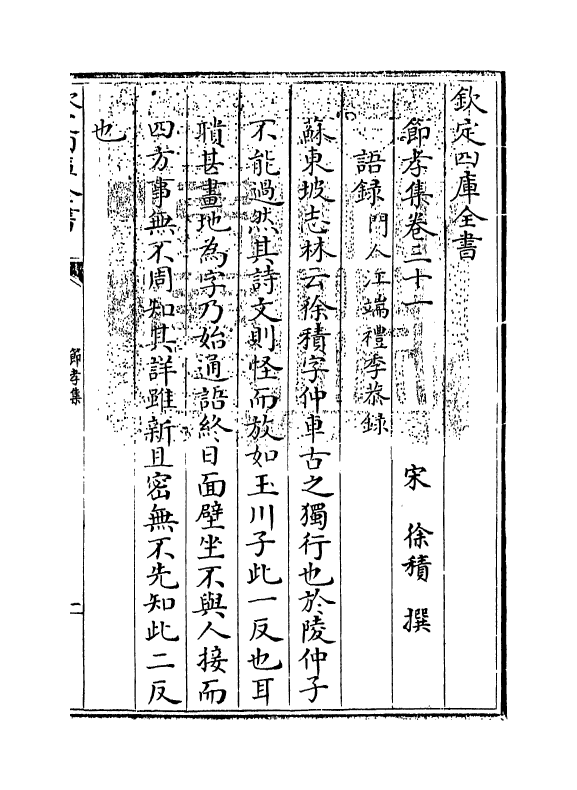 欽定四庫全書
節孝集卷三十一
宋 徐積 撰
語録 門人江端禮季恭録
蘇東坡志林云徐積字仲車古之獨行也於陵仲子
不能過然其詩文則怪而放如玉川子此一反也耳
聵甚畫地為字乃始通語終日面壁坐不與人接而
四方事無不周知其詳雖新且密無不先知此二反
也
節孝集